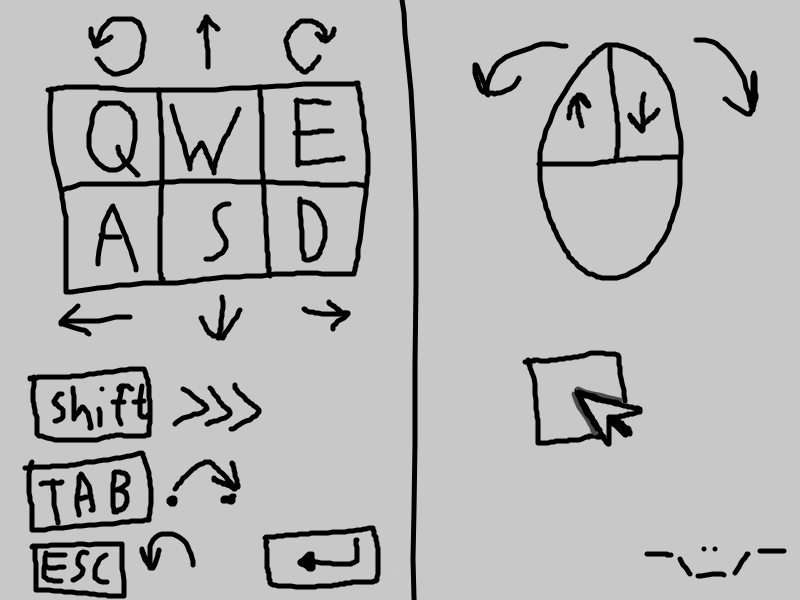 Q W E
A S D
shift
TAB
ESC